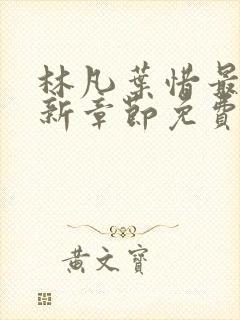 林凡葉惜最
新章節免費
黃文寶